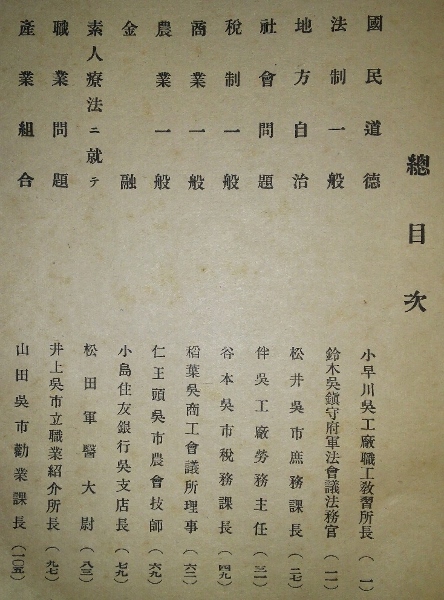 總目次
國民道德 小早川吳工廠職工敎習所長 (一)
法制一般 鈴木吳鎭守府軍法會議法務官 (一一)
地方自治 松井吳市庶務課長 (二七)
社會問題 伴吳工廠勞務主任 (三一)
稅制一般 谷本吳市稅務課長 (四九)
商業一般 稻葉吳商工會議所理事 (六二)
農業一般 仁王頭吳市農會技師 (六九)
金融 小島住友銀行吳支店長 (七九)
素人療法ニ就テ 松田軍醫大尉 (八三)
職業問題 井上吳市立職業紹介所長 (九七)
產業組合 山田吳市勸業課長 (一〇五)